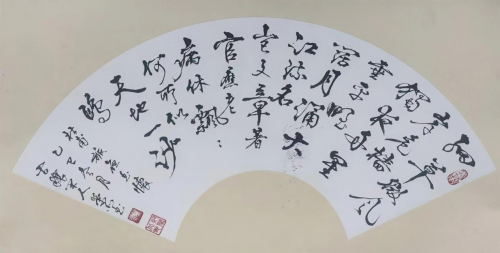 细草微风
岸危樯
独夜舟星
垂平野
阔月涌大
江流名
岂文章著
官应老
病休飘飘
何所似
天地一沙
鸥
杜甫旅夜书怀